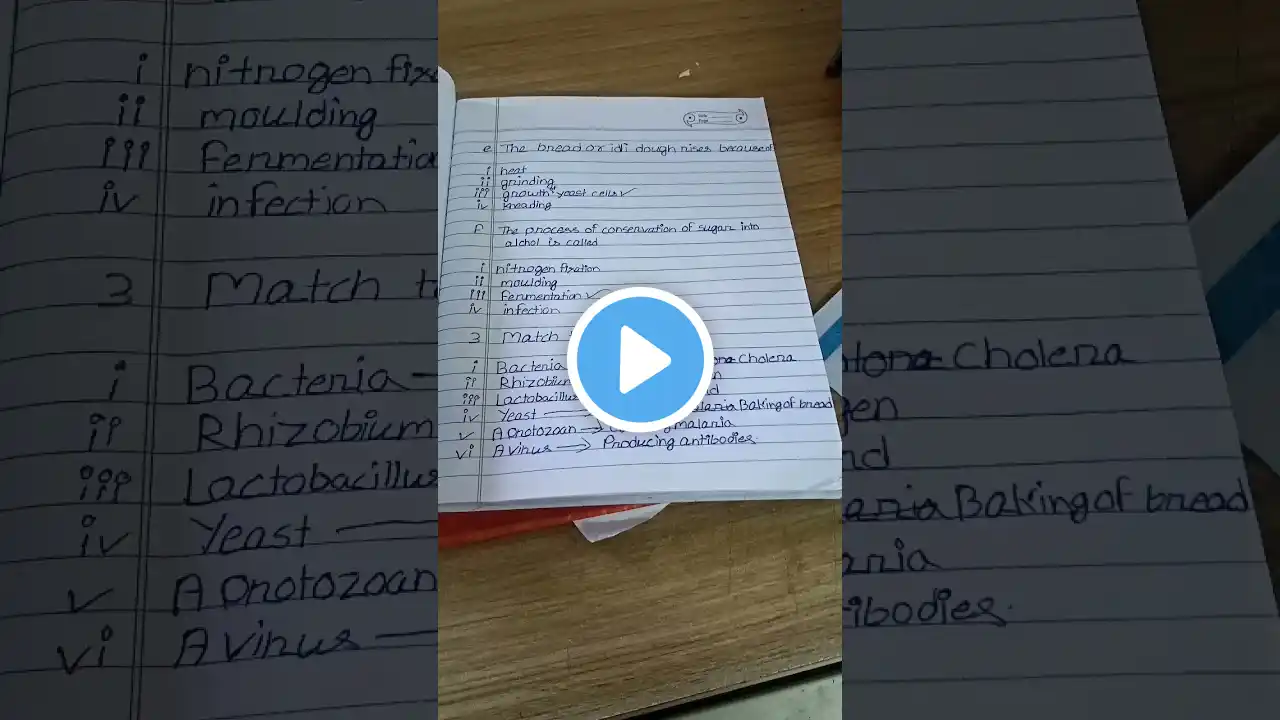 e The bread or idi dough rises because of
i heat
ii grinding
iii growth of yeast cells ✓
iv kneading
f The process of conservation of sugar into
alchol is called
i nitrogen fixation
ii moulding
iii Fermentation ✓
iv infection
3 Match
i Bacteria Cholera
ii Rhizobium
iii Lactobacillus
iv Yeast Baking of bread
v A protozoan → malaria
vi A virus → Producing antibodies.